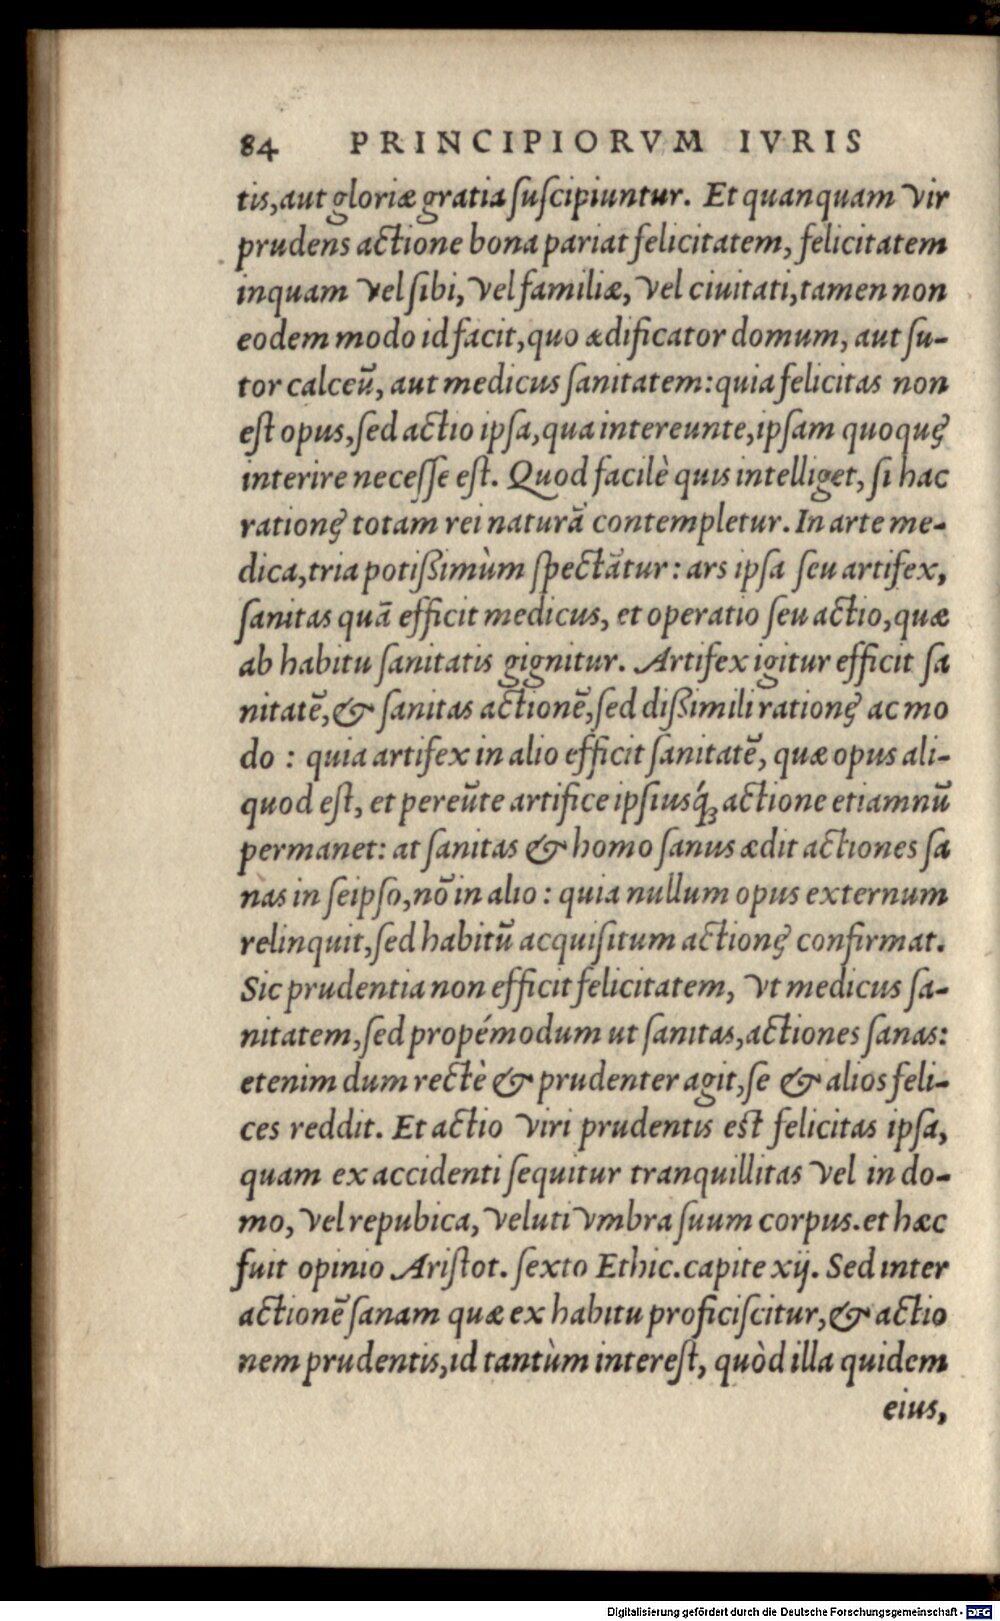 84 PRINCIPIORVM IVRIS
tis, aut gloriæ gratia ſuſcipiuntur. Et quanquam vir
prudens actione bona pariat felicitatem, felicitatem
inquam vel ſibi, vel familiæ, vel ciuitati, tamen non
eodem modo id facit, quo ædificator domum, aut ſu-
tor calceū, aut medicus ſanitatem: quia felicitas non
eſt opus, ſed actio ipſa, qua intereunte, ipſam quoquę
interire neceſſe eſt. Quod facilè quis intelliget, ſi hac
rationę totam rei naturā contempletur. In arte me-
dica, tria potiſsimùm ſpectātur: ars ipſa ſeu artifex,
ſanitas quā efficit medicus, et operatio ſeu actio, quæ
ab habitu ſanitatis gignitur. Artifex igitur efficit ſa
nitatē, & ſanitas actionē, ſed diſsimili rationę ac mo
do : quia artifex in alio efficit ſanitatē, quæ opus ali-
quod eſt, et pereūte artifice ipſiusq́ꝫ actione etiamnū
permanet: at ſanitas & homo ſanus ædit actiones ſa
nas in ſeipſo, nō in alio : quia nullum opus externum
relinquit, ſed habitū acquiſitum actionę confirmat.
Sic prudentia non efficit felicitatem, vt medicus ſa-
nitatem, ſed propémodum ut ſanitas, actiones ſanas:
etenim dum rectè & prudenter agit, ſe & alios feli-
ces reddit. Et actio viri prudentis eſt felicitas ipſa,
quam ex accidenti ſequitur tranquillitas vel in do-
mo, vel repubica, veluti vmbra ſuum corpus. et hæc
fuit opinio Ariſtot. ſexto Ethic. capite xij. Sed inter
actionē ſanam quæ ex habitu proficiſcitur, & actio
nem prudentis, id tantùm intereſt, quòd illa quidem
eius,
Digitalisierung gefördert durch die Deutsche Forschungsgemeinschaft - DFG